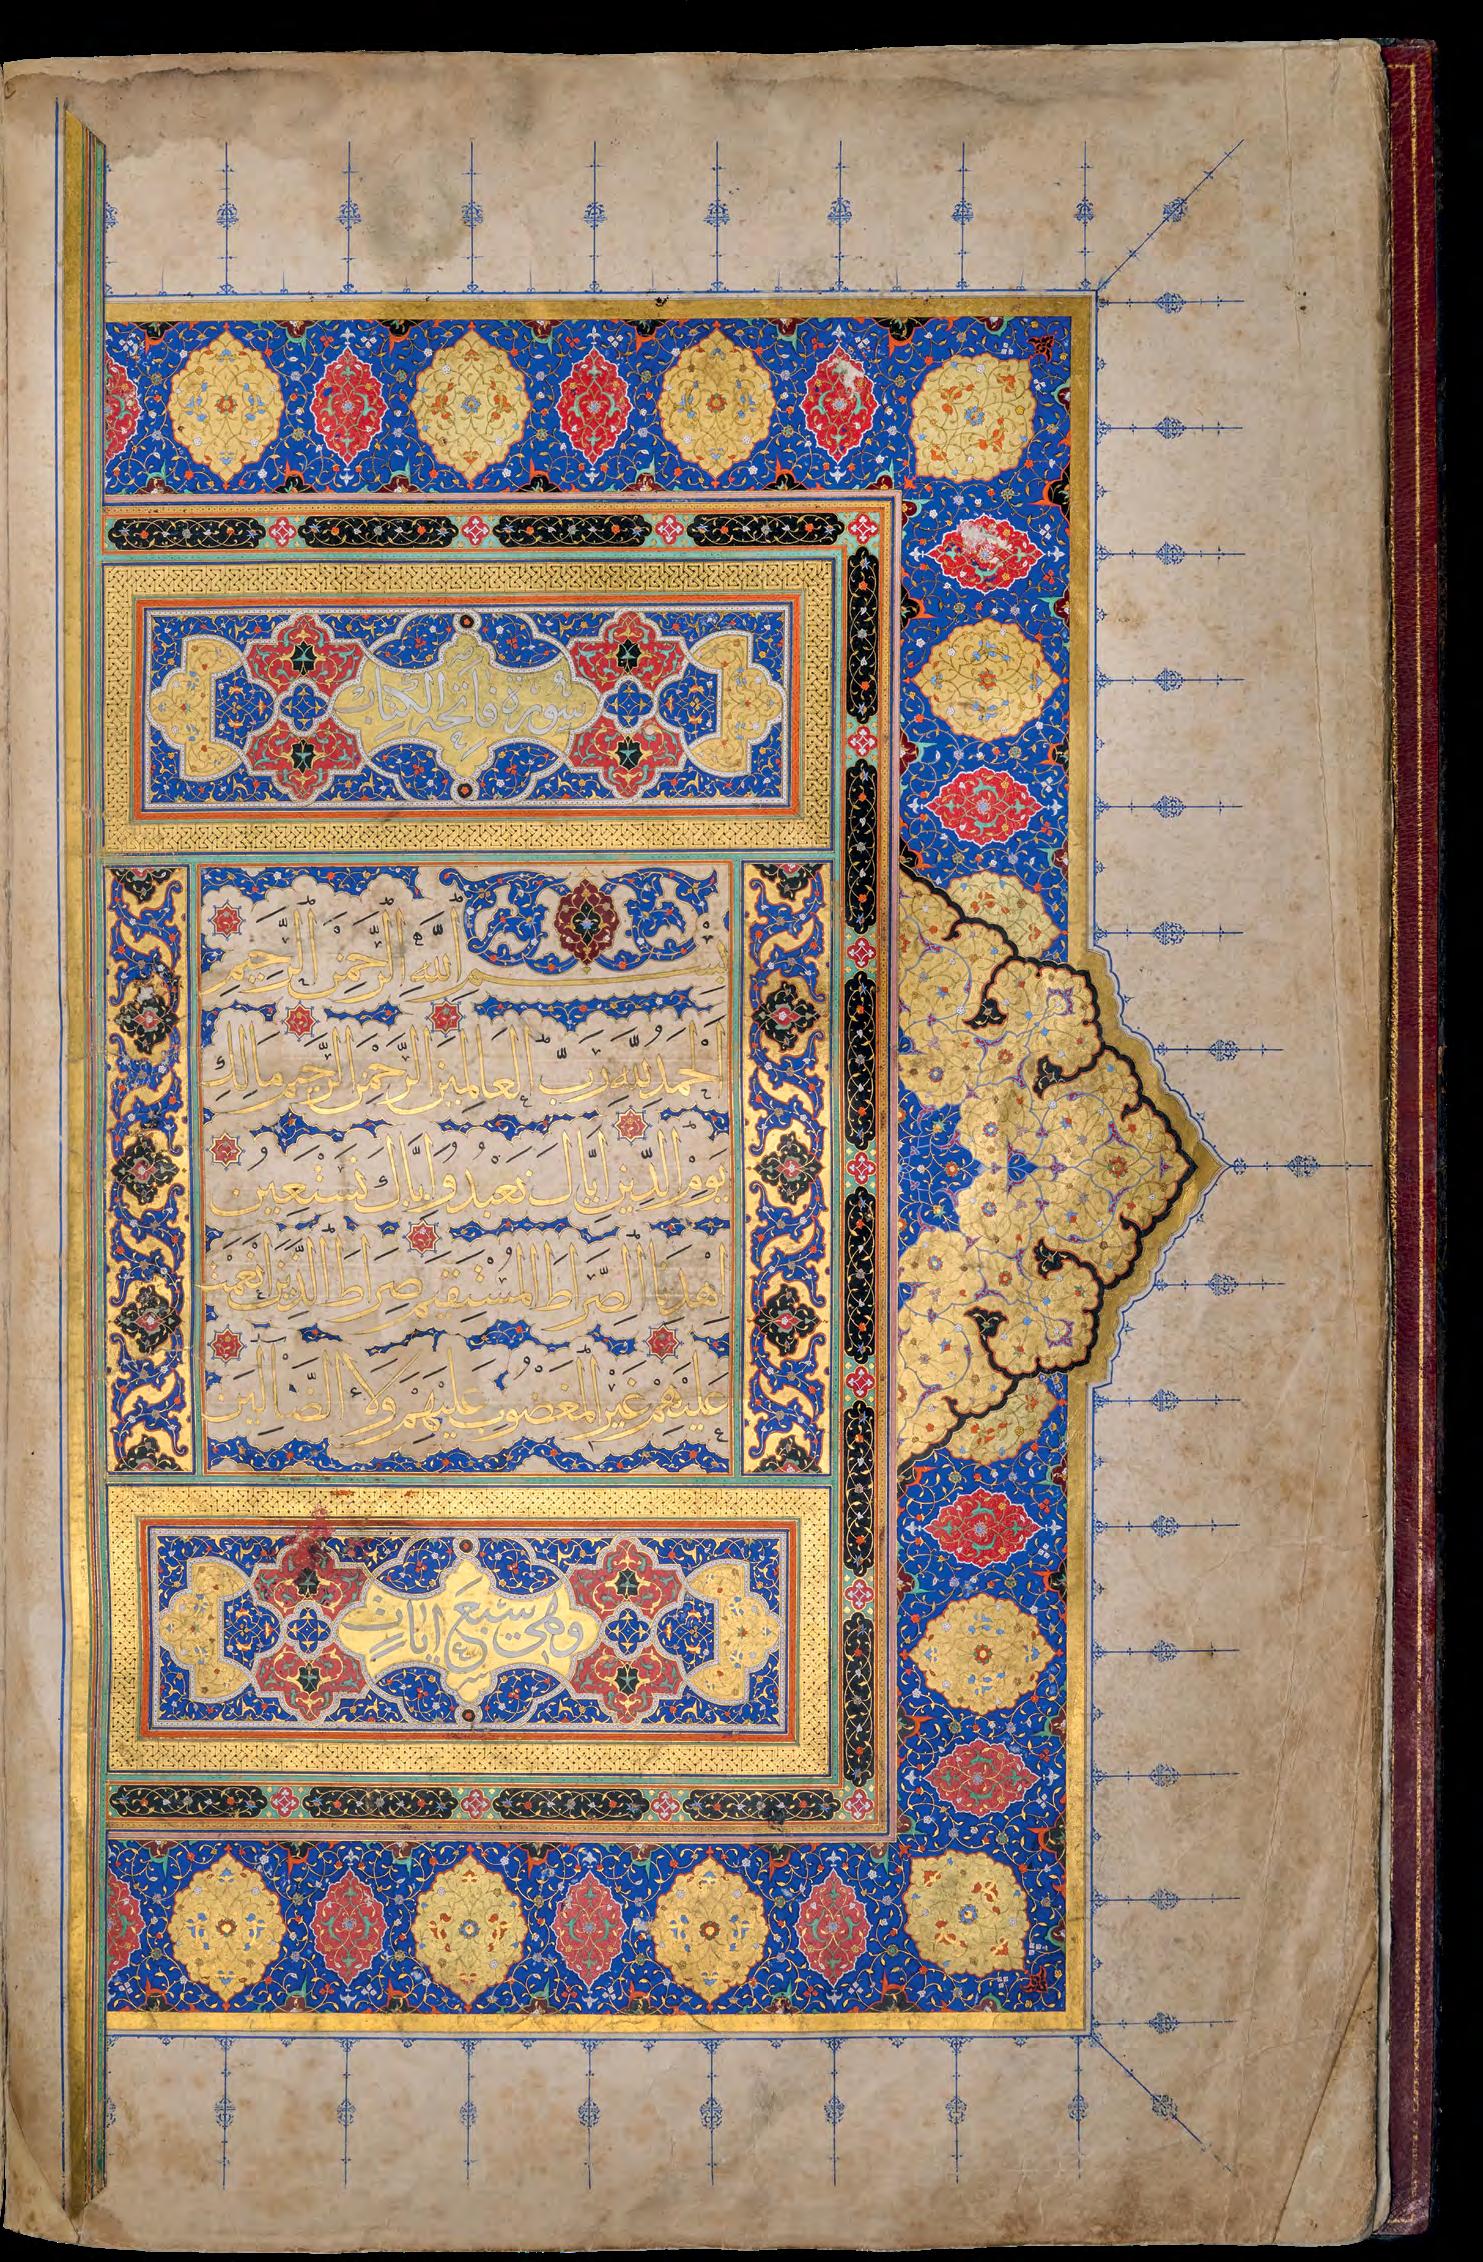 سورة فاتحة الكتاب
بِسْمِ اللَّهِ الرَّحْمَنِ الرَّحِيمِ
اَلْحَمْدُ لِلَّهِ رَبِّ الْعَالَمِينَ الرَّحْمَنِ الرَّحِيمِ مَالِكِ
يَوْمِ الدِّينِ اِيَّاكَ نَعْبُدُ وَاِيَّاكَ نَسْتَعِينُ
اِهْدِنَا الصِّرَاطَ الْمُسْتَقِيمَ صِرَاطَ الَّذِينَ اَنْعَمْتَ
عَلَيْهِمْ غَيْرِ الْمَغْضُوبِ عَلَيْهِمْ وَلَا الضَّالِّينَ
وهي سبع ايات